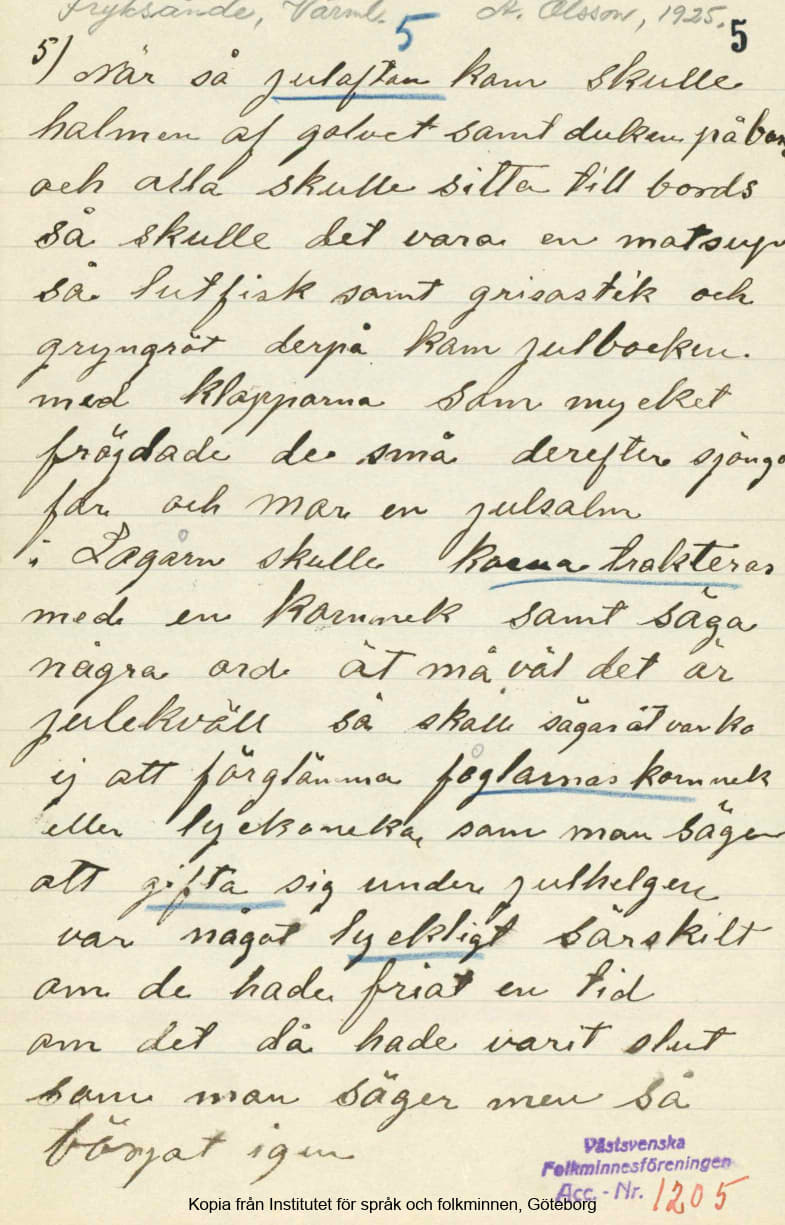 Fryksände, Värml. 5 A. Olsson, 1925. 5
5) När så julaftan kom skulle
halmen af golvet samt duken på bor
och alla skulle sitta till bords
så skulle det vara en matsup
så lutfisk samt grisastik och
gryngröt derpå kom julbocken.
med klapparna som mycket
fröjdade de små derefter sjöngo
far och mor en julsalm
i Lagårn skulle korna trakteras
med en kornnek samt säga
några ord ät må väl det är
julekväll så skall sägas åt var ko
ej att förglämma foglarnas kornnek
eller lyckoneka, som man säger
att gifta sig under julhelgen
var något lyckligt särskilt
om de hade friat en tid
om det då hade varit slut
som man säger men så
börjat igen
Västsvenska
Folkminnesföreningen
Acc. - Nr. 1205
Kopia från Institutet för språk och folkminnen, Göteborg